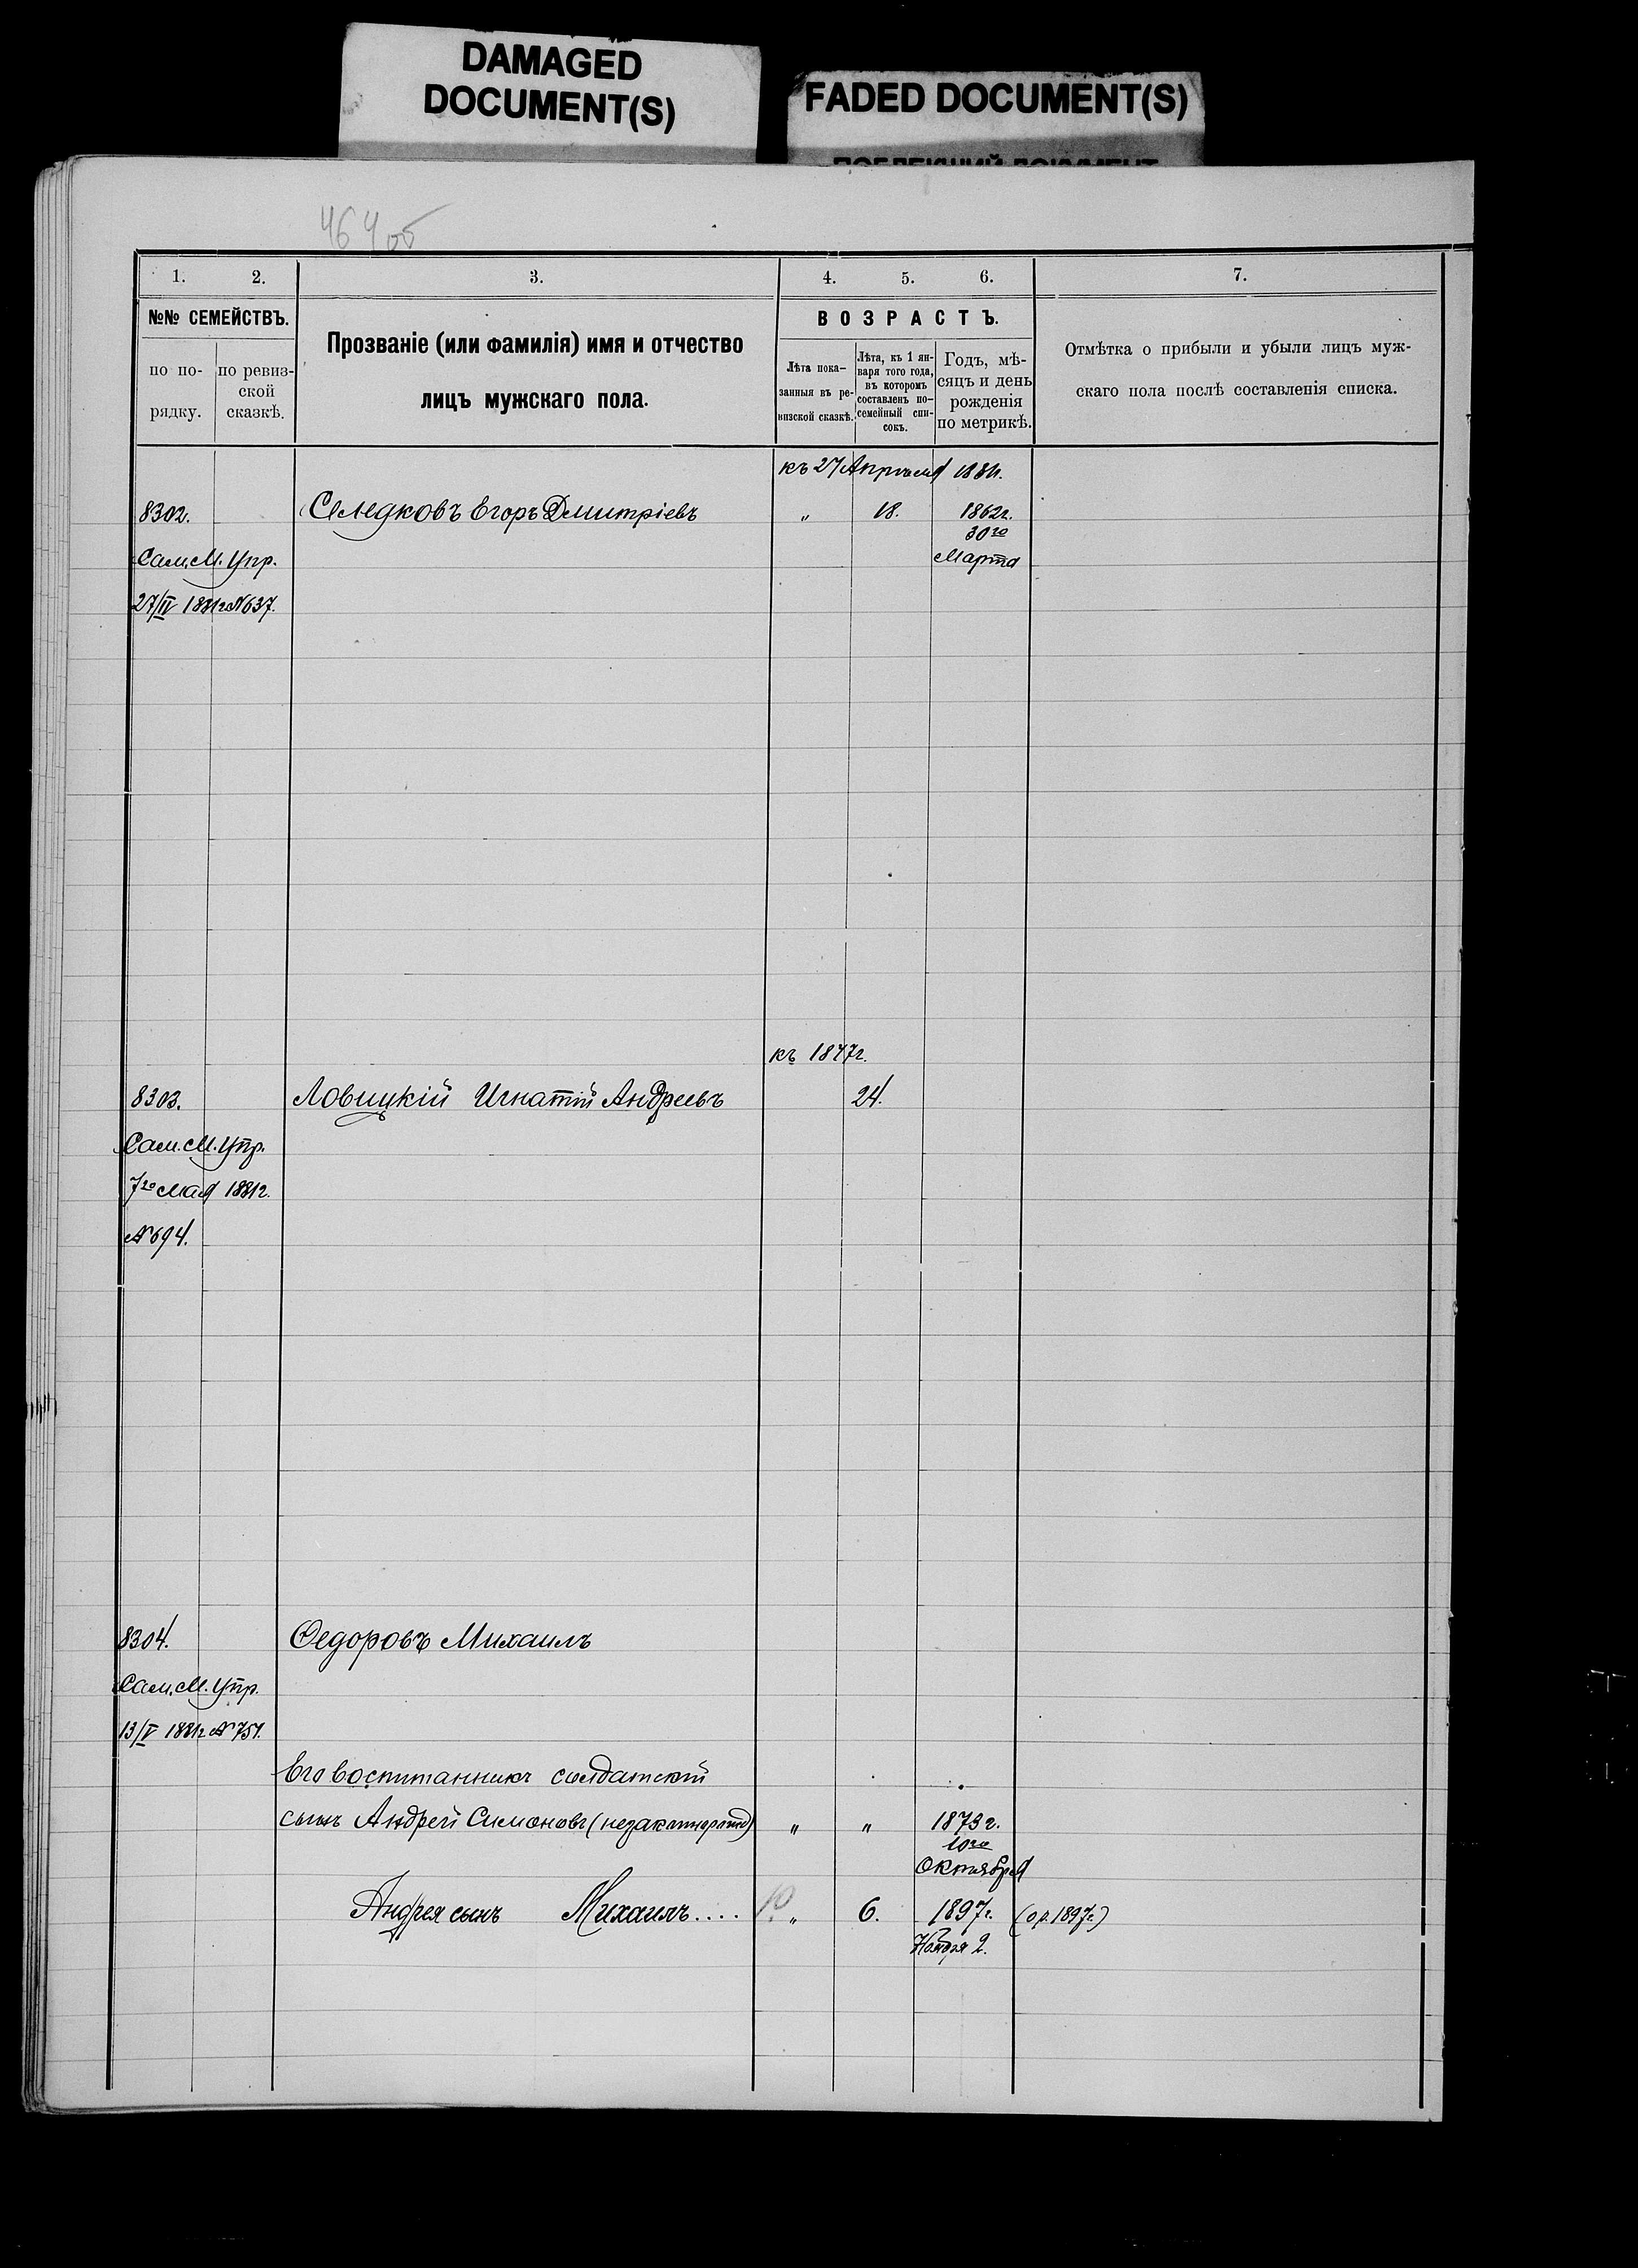 DAMAGED
DOCUMENT(S)
FADED DOCUMENT(S)
464 об
1. 2. 3. 4. 5. 6. 7.
№№ СЕМЕЙСТВЪ.
по по-
рядку.
по ревиз-
ской
сказкѣ.
Прозваніе (или фамилія) имя и отчество
лицъ мужскаго пола.
ВОЗРАСТЪ.
Лѣта пока-
занныя въ ре-
визской сказкѣ.
Лѣта, къ 1 ян-
варя того года,
въ которомъ
составленъ по-
семейный спи-
сокъ.
Годъ, мѣ-
сяцъ и день
рожденія
по метрикѣ.
Отмѣтка о прибыли и убыли лицъ муж-
скаго пола послѣ составленія списка.
къ 27 Апрѣля 1881г.
8302. Селедковъ Егоръ Дмитріевъ " 18. 1862г.
30го
Сам. М. Упр. Марта
27/IV 1881г №637.
къ 1847г.
8303. Ловицкій Игнатій Андреевъ 24.
Сам. М. Упр.
7го Мая 1881г.
№694.
8304. Ѳедоровъ Михаилъ
Сам. М. Упр.
13/V 1881г №751.
Его воспитанникъ солдатскій
сынъ Андрей Симоновъ (незаконнорожд) " " 1873г.
10го
Октября
Андрея сынъ Михаилъ.... 10. " 6. 1897г. (о р. 1897г.)
Ноября 2.